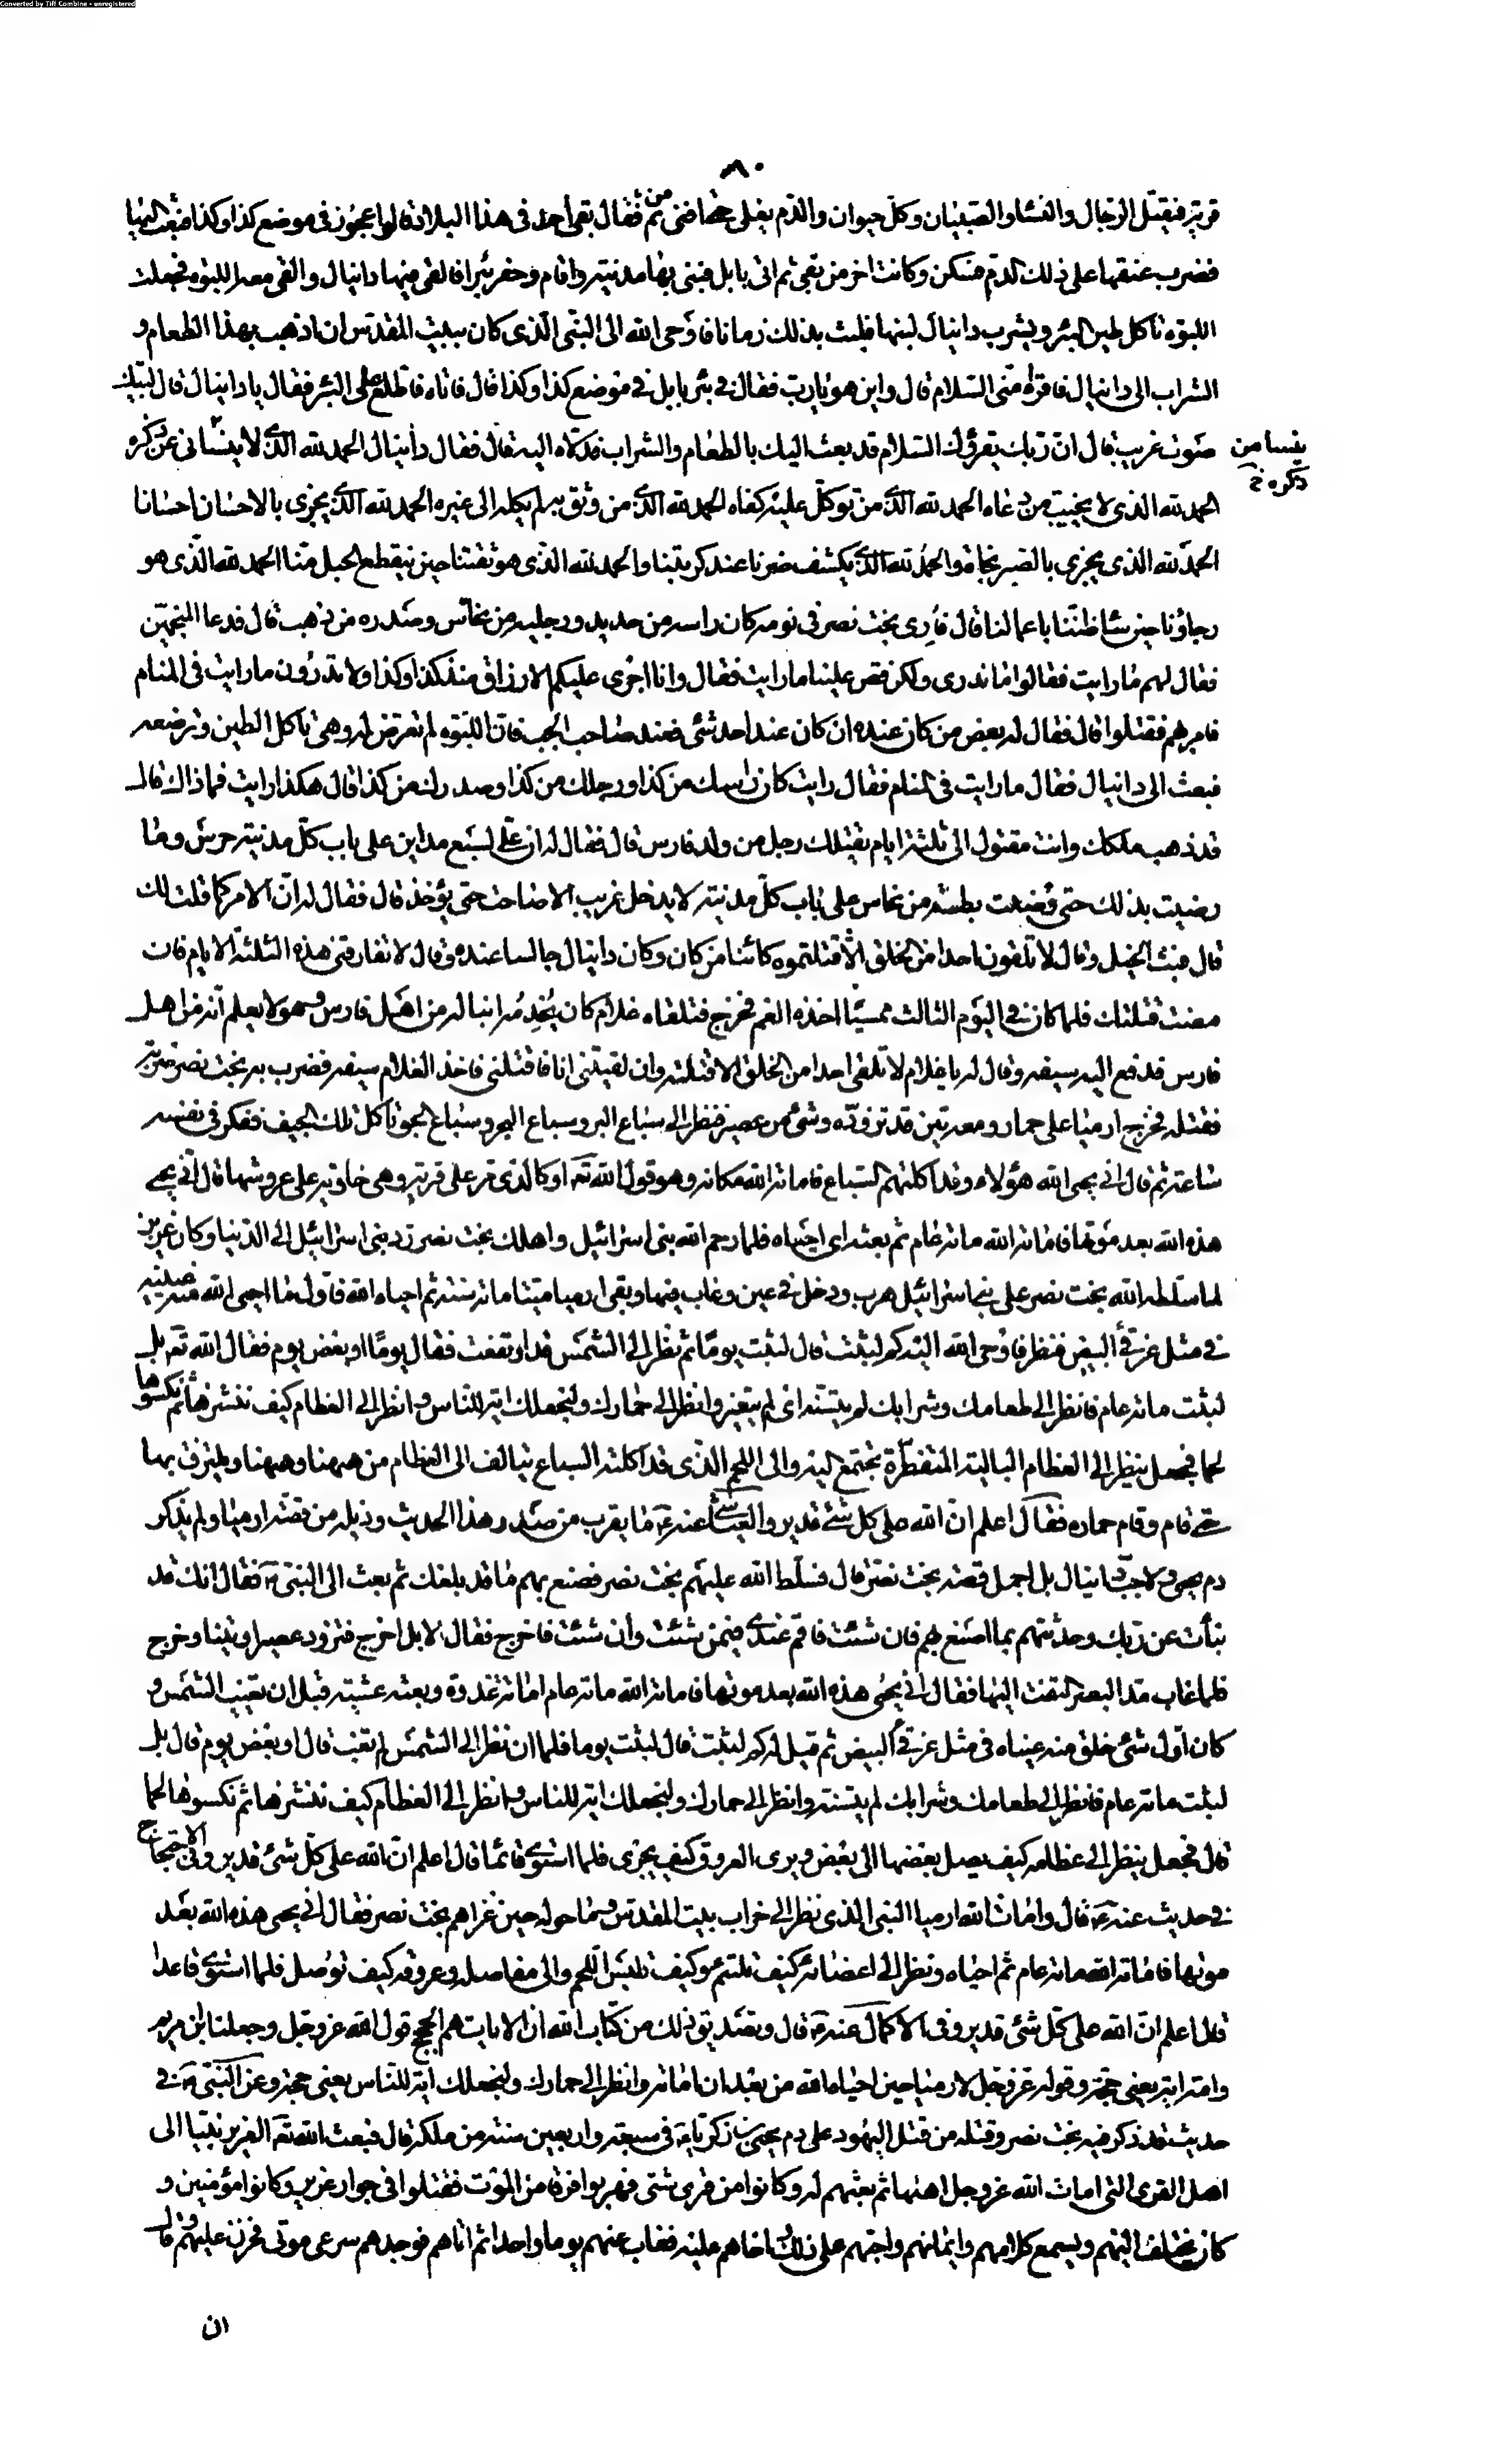 Converted by Tiff Combine - unregistered
٨٠
قرية فيقتل الرجال والنساء والصبيان وكل حيوان والدم يغلى حتى افنى من ثم فقال بقى احد فى هذا البلاد قالوا عجوز فى موضع كذا وكذا فبعث اليها
فضرب عنقها على ذلك الدم فسكن وكانت اخر من بقى ثم اتى بابل فبنى بها مدينة واقام وحفر بئرا فالقى فيها دانيال والقى معه اللبوه فجعلت
اللبوة تاكل طين البئر ويشرب دانيال لبنها فلبث بذلك زمانا فاوحى الله الى النبى الذى كان ببيت المقدس ان اذهب بهذا الطعام و
الشراب الى دانيال فاقراه منى السلام قال واين هو يا رب فقال فى بئر بابل فى موضع كذا وكذا قال فاتاه فاطلع على البئر فقال يا دانيال قال لبيك
صوت غريب قال ان ربك يقرؤك السلام قد بعث اليك بالطعام والشراب فدلاه اليه قال فقال دانيال الحمد لله الذى لا ينسانى عن ذكره
ينسا من
ذكره خ
الحمد لله الذى لا يخيب من دعاه الحمد لله الذى من توكل عليه كفاه الحمد لله الذى من وثق به لم يكله الى غيره الحمد لله الذى يجزى بالاحسان احسانا
الحمد لله الذى يجزى بالصبر نجاة والحمد لله الذى يكشف ضرنا عند كربتنا والحمد لله الذى هو ثقتنا حين ينقطع الحيل منا الحمد لله الذى هو
رجاؤنا حين ساء ظننا باعمالنا قال فارى بخت نصر فى نومه كان راسه من حديد ورجليه من نحاس وصدره من ذهب قال فدعا المنجمين
فقال لهم ما رايت فقالوا ما ندرى ولكن قص علينا ما رايت فقال وانا اجرى عليكم الارزاق منذ كذا وكذا ولا تدرون ما رايت فى المنام
فامر بهم فقتلوا قال فقال له بعض من كان عنده ان كان عند احد شئ فعند صاحب الجب فان اللبوه لم تعرض له وهى تاكل الطين وترضعه
فبعث الى دانيال فقال ما رايت فى المنام فقال رايت كان راسك من كذا ورجلك من كذا وصدرك من كذا قال هكذا رايت فما ذاك قال
قد ذهب ملكك وانت مقتول الى ثلثة ايام يقتلك رجل من ولد فارس قال فقال له ان على لسبع مداين على باب كل مدينة حرس وما
رضيت بذلك حتى وضعت بطة من نحاس على باب كل مدينة لا يدخل غريب الا صاحت حتى يؤخذ قال فقال له ان الامر كما قلت لك
قال فبث الخيل وقال لا تلقون احدا من الخلق الا قتلتموه كائنا من كان وكان دانيال جالسا عنده وقال لا تفارقنى هذه الثلثة الايام فان
مضت قتلتك فلما كان فى اليوم الثالث ممسيا اخذه الغم فخرج فتلقاه غلام كان يخدم ابنا له من اهل فارس وهو لا يعلم انه من اهل
فارس فدفع اليه سيفه وقال له يا غلام لا تلقى احدا من الخلق الا قتلته وان لقيتنى انا فاقتلنى فاخذ الغلام سيفه فضرب به بخت نصر ضربة
فقتله فخرج ارميا على حمار ومعه تين قد تزوده وشئ من عصير فنظر الى سباع البر وسباع البحر وسباع الجو تاكل تلك الجيف ففكر فى نفسه
ساعة ثم قال انى يحيى الله هؤلاء وقد اكلتهم السباع فاماته الله مكانه وهو قول الله تعه او كالذى مر على قرية وهى خاوية على عروشها قال انى يحيى
هذه الله بعد موتها فاماته الله مائة عام ثم بعثه اى احياه فلما رحم الله بنى اسرائيل واهلك بخت نصر رد بنى اسرائيل الى الدنيا وكان عزير
لما سلط الله بخت نصر على بنى اسرائيل هرب ودخل فى عين وغاب فيها وبقى ارميا ميتا مائة سنة ثم احياه الله فاول ما احيى الله منه عينيه
فى مثل غرقئ البيض فنظر فاوحى الله اليه كم لبثت قال لبثت يوما ثم نظر الى الشمس قد ارتفعت فقال يوما او بعض يوم فقال الله تعه بل
لبثت مائة عام فانظر الى طعامك وشرابك لم يتسنه اى لم يتغير وانظر الى حمارك ولنجعلك اية للناس وانظر الى العظام كيف ننشزها ثم نكسوها
لحما فجعل ينظر الى العظام البالية المتفطرة تجتمع اليه والى اللحم الذى قد اكلته السباع يتالف الى العظام من ههنا وههنا ويلتزق بها
حتى قام وقام حماره فقال اعلم ان الله على كل شئ قدير والعياشى عنه ع ما يقرب من صدر هذا الحديث وذيله من قصة ارميا ولم يذكر
دم يحيى ولا جب دانيال بل اجمل قصة بخت نصر قال فسلط الله عليهم بخت نصر فصنع بهم ما قد بلغك ثم بعث الى النبى فقال انك قد
نبأت عن ربك وحدثتهم بما اصنع بهم فان شئت فاقم عندى فيمن شئت وان شئت فاخرج فقال لا بل اخرج فتزود عصيرا وتينا وخرج
فلما غاب مد البصر التفت اليها فقال انى يحيى هذه الله بعد موتها فاماته الله مائة عام اماته غدوة وبعثه عشية قبل ان تغيب الشمس و
كان اول شئ خلق منه عيناه فى مثل غرقئ البيض ثم قيل له كم لبثت قال لبثت يوما فلما ان نظر الى الشمس لم تغب قال او بعض يوم قال بل
لبثت مائة عام فانظر الى طعامك وشرابك لم يتسنه وانظر الى حمارك ولنجعلك اية للناس وانظر الى العظام كيف ننشزها ثم نكسوها لحما
قال فجعل ينظر الى عظامه كيف يصل بعضها الى بعض ويرى العروق كيف يجرى فلما استوى قائما قال اعلم ان الله على كل شئ قدير وفى الاحتجاج
فى حديث عنه ع قال وامات الله ارميا النبى الذى نظر الى خراب بيت المقدس وما حوله حين غزاهم بخت نصر فقال انى يحيى هذه الله بعد
موتها فاماته الله مائة عام ثم احياه ونظر الى اعضائه كيف تلتئم وكيف تلبس اللحم والى مفاصله وعروقه كيف توصل فلما استوى قاعدا
قال اعلم ان الله على كل شئ قدير وفى الاكمال عنه ع قال وتصديق ذلك من كتاب الله ان الايات هم الحجج قول الله عز وجل وجعلنا ابن مريم
وامه اية يعنى حجة وقوله عز وجل لارميا حين احياه الله من بعد ان اماته وانظر الى حمارك ولنجعلك اية للناس يعنى حجة وعن النبى ص فى
حديث قد ذكر فيه بخت نصر وقتله من قتل اليهود على دم يحيى بن زكريا ع فى سبعة واربعين سنة من ملكه قال فبعث الله تعه العزير نبيا الى
اهل القرى التى امات الله عز وجل اهلها ثم بعثهم له وكانوا من قرى شتى فهربوا فرقا من الموت فنزلوا فى جوار عزير وكانوا مؤمنين و
كان يختلف اليهم ويسمع كلامهم وايمانهم واحبهم على ذلك واخاهم عليه فغاب عنهم يوما واحدا ثم اتاهم فوجدهم صرعى موتى فحزن عليهم وقال
ان